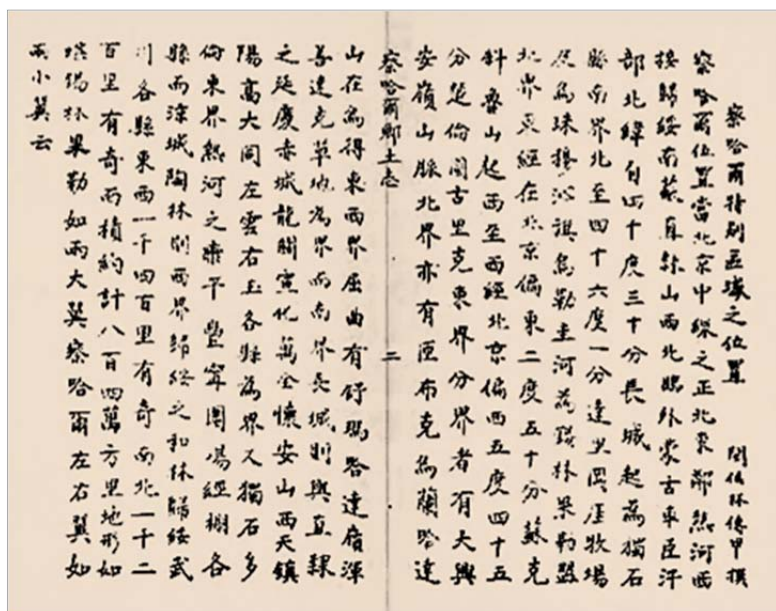 察哈爾特別區域之位置　閩侯林傳甲撰
察哈爾位置當北京中線之正北東鄰熱河西
接歸綏南蔽直隸山西北臨外蒙古車臣汗
部北緯自四十度三十分長城起為獨石
縣南界北至四十六度一分達里岡厓牧場
及烏珠穆沁旗烏勒圭河為錫林果勒盟
北界東經在北京偏東二度五十分蘇克
斜魯山起西至西經北京偏西五度四十五
分楚倫闊古里克東界分界者有大興
安嶺山脈北界亦有匝布克烏蘭哈達
察哈爾鄉土志　二
山在烏得東西界屈曲有舒瑪哈達嶺渾
善達克草地為界而南界長城則與直隸
之延慶赤城龍關宣化萬全懷安山西天鎮
陽高大同左雲右玉各縣為界又獨石多
倫東界熱河之灤平豐寧圍場經棚各
縣而涼城陶林則西界歸綏之和林歸綏武
川各縣東西一千四百里有奇南北一十二
百里有奇面積約計八百四萬方里地形如
璜錫林果勒如兩大翼察哈爾左右翼如
兩小翼云